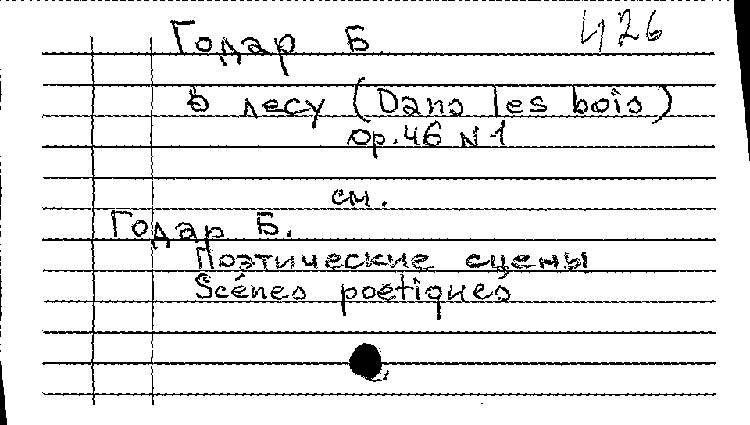 Годар Б. 426
В лесу (Dans les bois)
op. 46 N 1
см.
Годар Б.
Поэтические сцены
Scénes poetiques